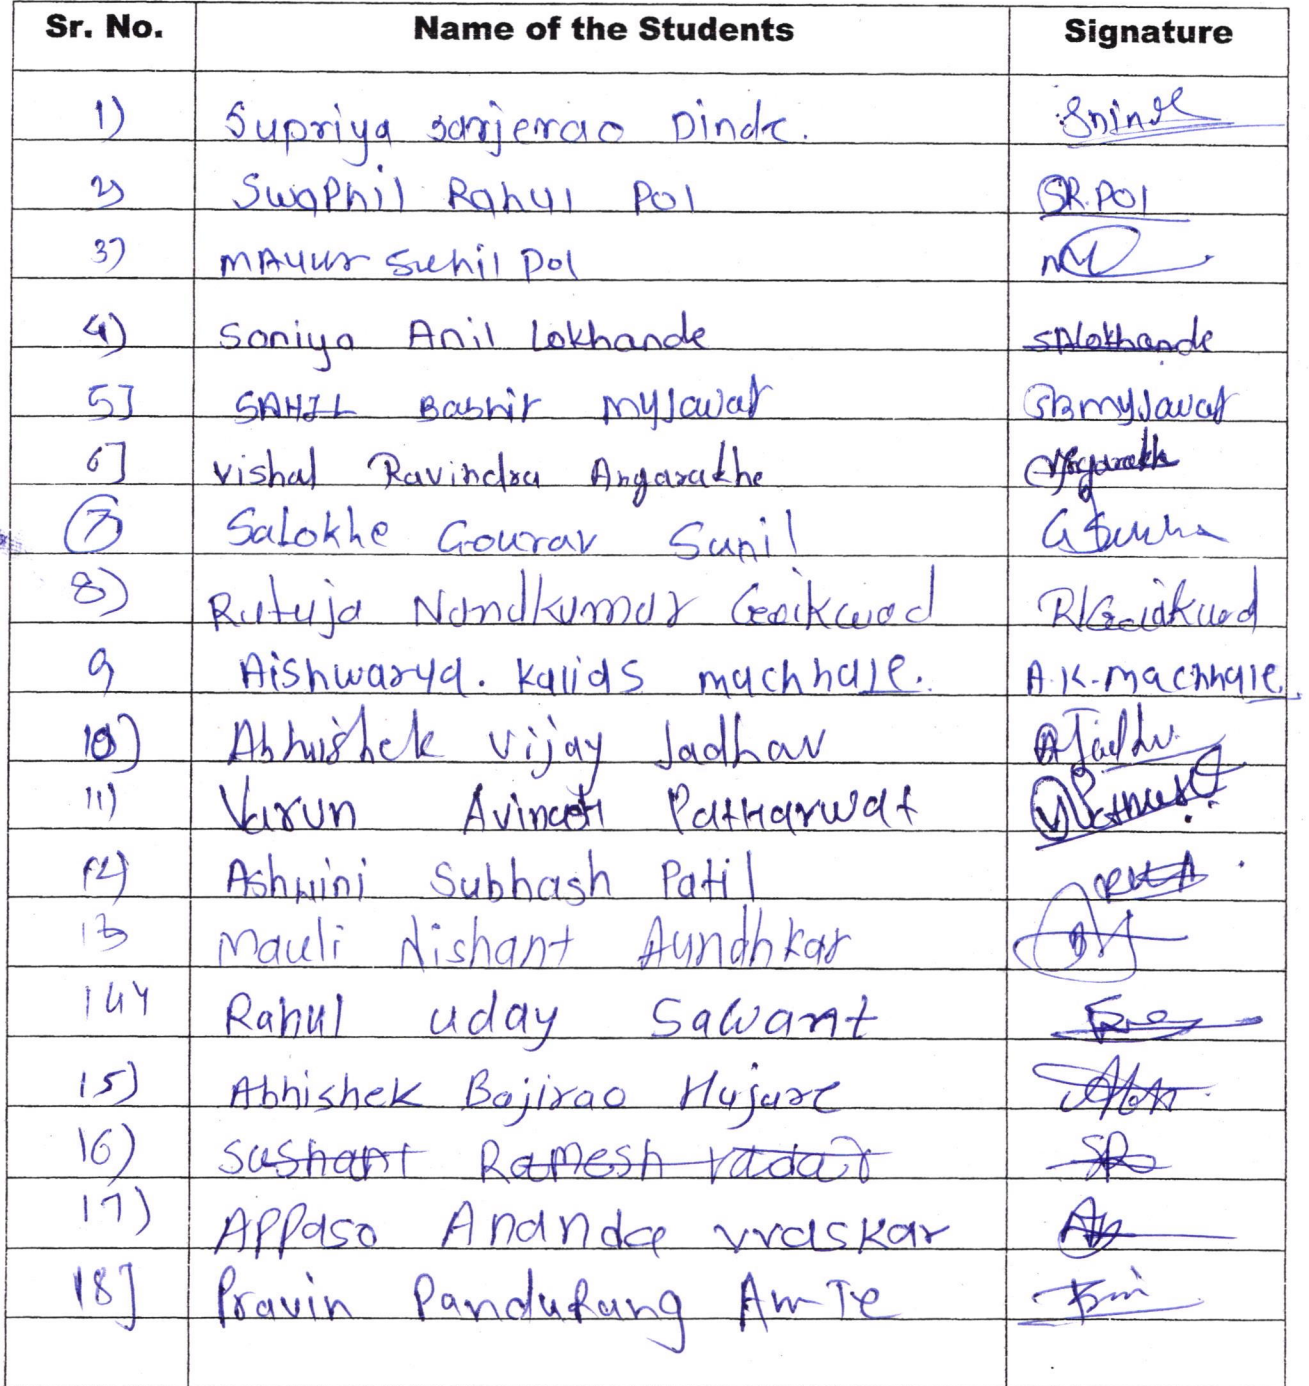 Sr. No. Name of the Students Signature
1) Supriya sarjerao Dinde.
2) Swaphil Rahul Pol SR.POl
3) MAyur Sunil Pol
4) Soniya Anil Lokhande SAlokhande
5] SAHIL Bashir Myjawar SBmyJawar
6] Vishal Ravindra Angarakhe
7 Salokhe Gourav Sunil
8) Rutuja Nandkumar Gaikwad RNGaikwad
9 Aishwarya. Kalidas machhale. A.K.machhale.
10) Abhishek Vijay Jadhav
11) Varun Avinash Patharwat
12) Ashwini Subhash Patil
13 Mauli Nishant Aundhkar
14 Rahul uday Sawant
15) Abhishek Bajirao Hujare
16) Sushant Ramesh Vadar
17) Appaso Ananda vraskar
18] Pravin Pandurang AmTe